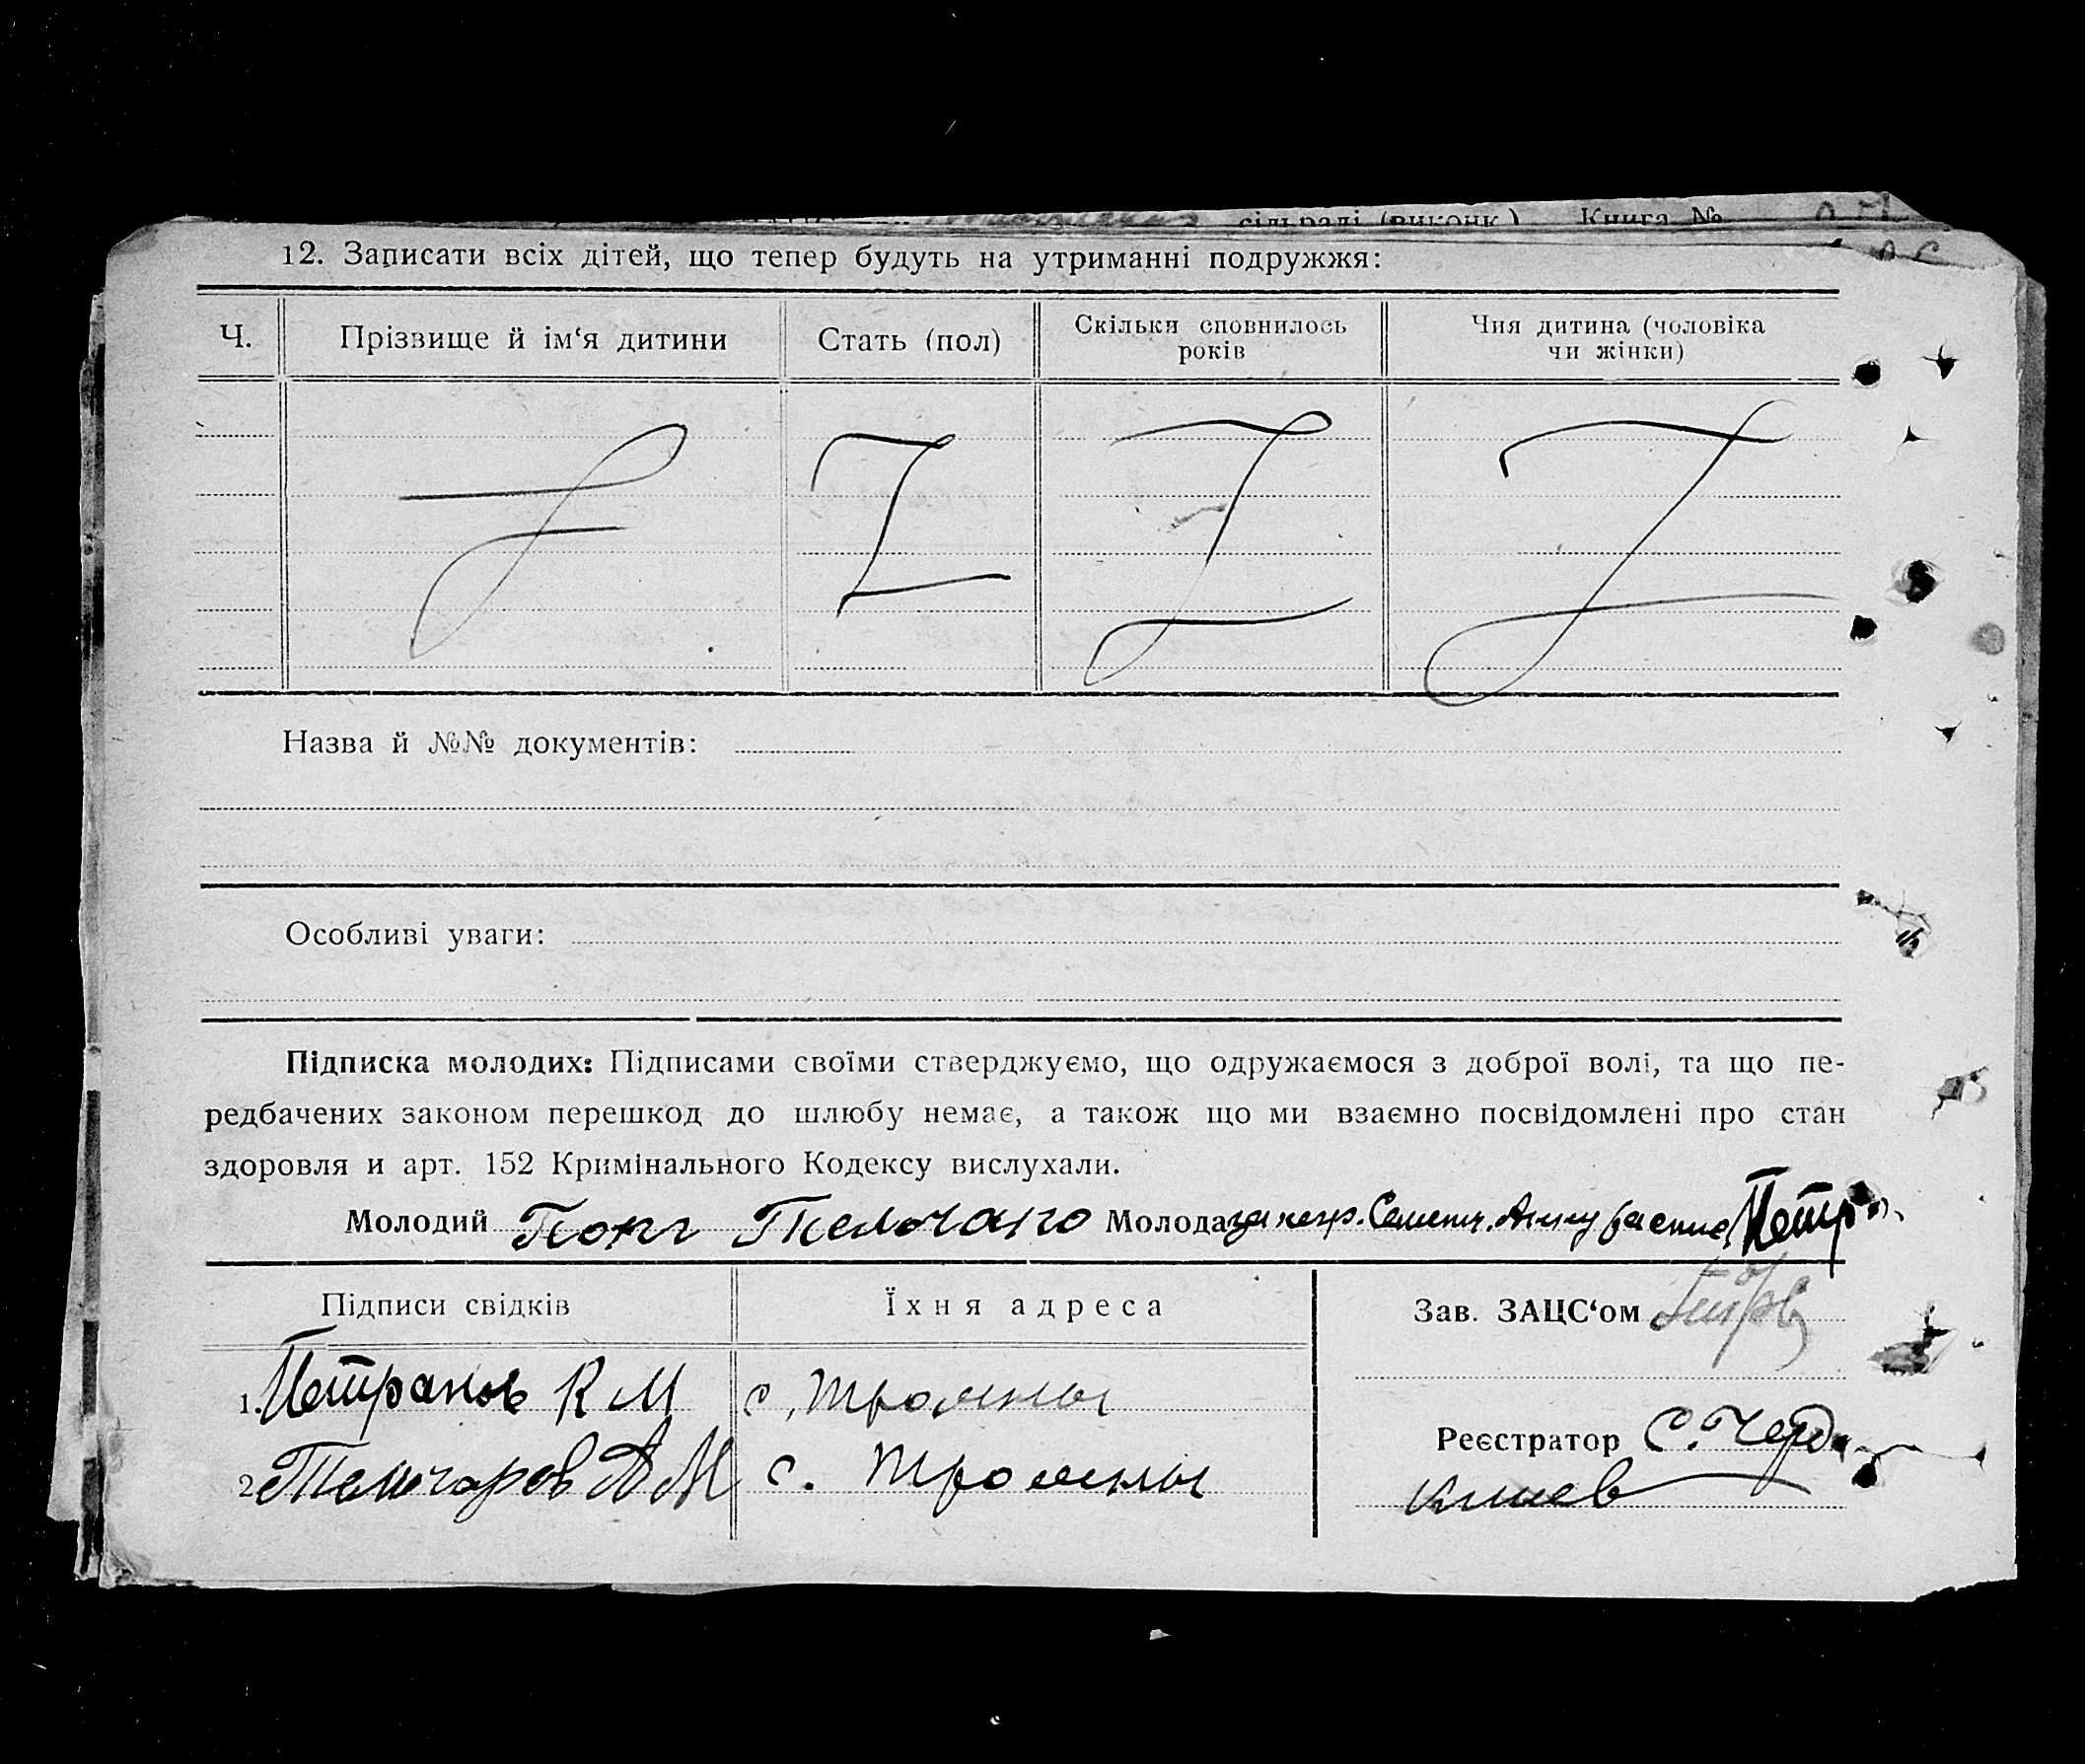 сільраді (виконк.) Книга №
12. Записати всіх дітей, що тепер будуть на утриманні подружжя:
Ч. Прізвище й ім‘я дитини Стать (пол) Скільки сповнилось років Чия дитина (чоловіка чи жінки)
Назва й №№ документів:
Особливі уваги:
Підписка молодих: Підписами своїми стверджуємо, що одружаємося з доброї волі, та що пе-
редбачених законом перешкод до шлюбу немає, а також що ми взаємно посвідомлені про стан
здоровля и арт. 152 Кримінального Кодексу вислухали.
Молодий Молода за негр. Анну
Підписи свідків Їхня адреса Зав. ЗАЦС‘ом
1. Петранов К М с.
Реєстратор С. Черд
2 А М с.